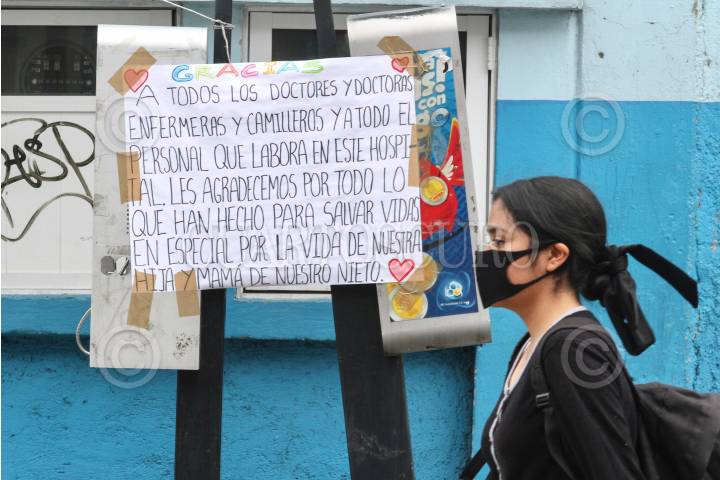 GRACIAS
A TODOS LOS DOCTORES Y DOCTORAS
ENFERMERAS Y CAMILLEROS Y A TODO EL
PERSONAL QUE LABORA EN ESTE HOSPI
TAL. LES AGRADECEMOS POR TODO LO
QUE HAN HECHO PARA SALVAR VIDAS
EN ESPECIAL POR LA VIDA DE NUESTRA
HIJA Y MAMÁ DE NUESTRO NIETO.
con